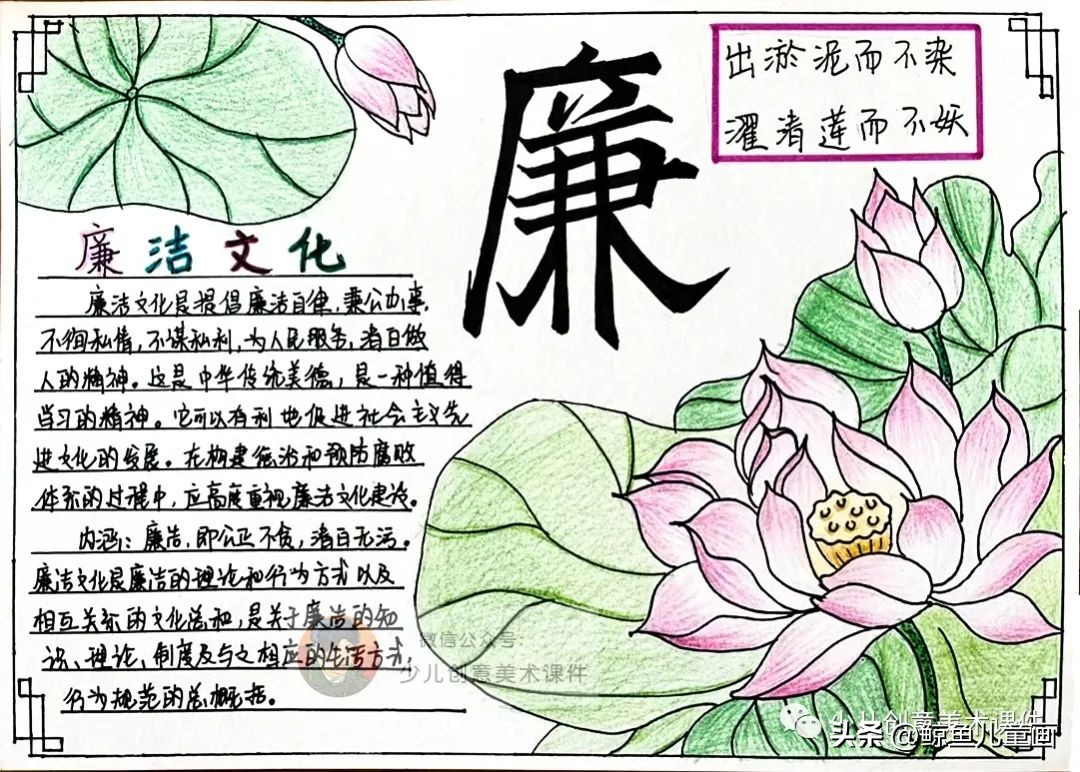 廉
出淤泥而不染
濯清莲而不妖
廉洁文化
廉洁文化是提倡廉洁自律,秉公办事,
不徇私情,不谋私利,为人民服务,清白做
人的精神。这是中华传统美德,是一种值得
学习的精神。它可以有利地促进社会主义先
进文化的发展。在构建惩治和预防腐败
体系的过程中,应高度重视廉洁文化建设。
内涵:廉洁,即公正不贪,清白无污。
廉洁文化是廉洁的理论和行为方式以及
相互关系的文化总和,是关于廉洁的知
识、理论、制度及与之相应的生活方式,
行为规范的总概括。
微信公众号:
少儿创意美术课件
少儿创意美术课件
头条@鲸鱼儿童画